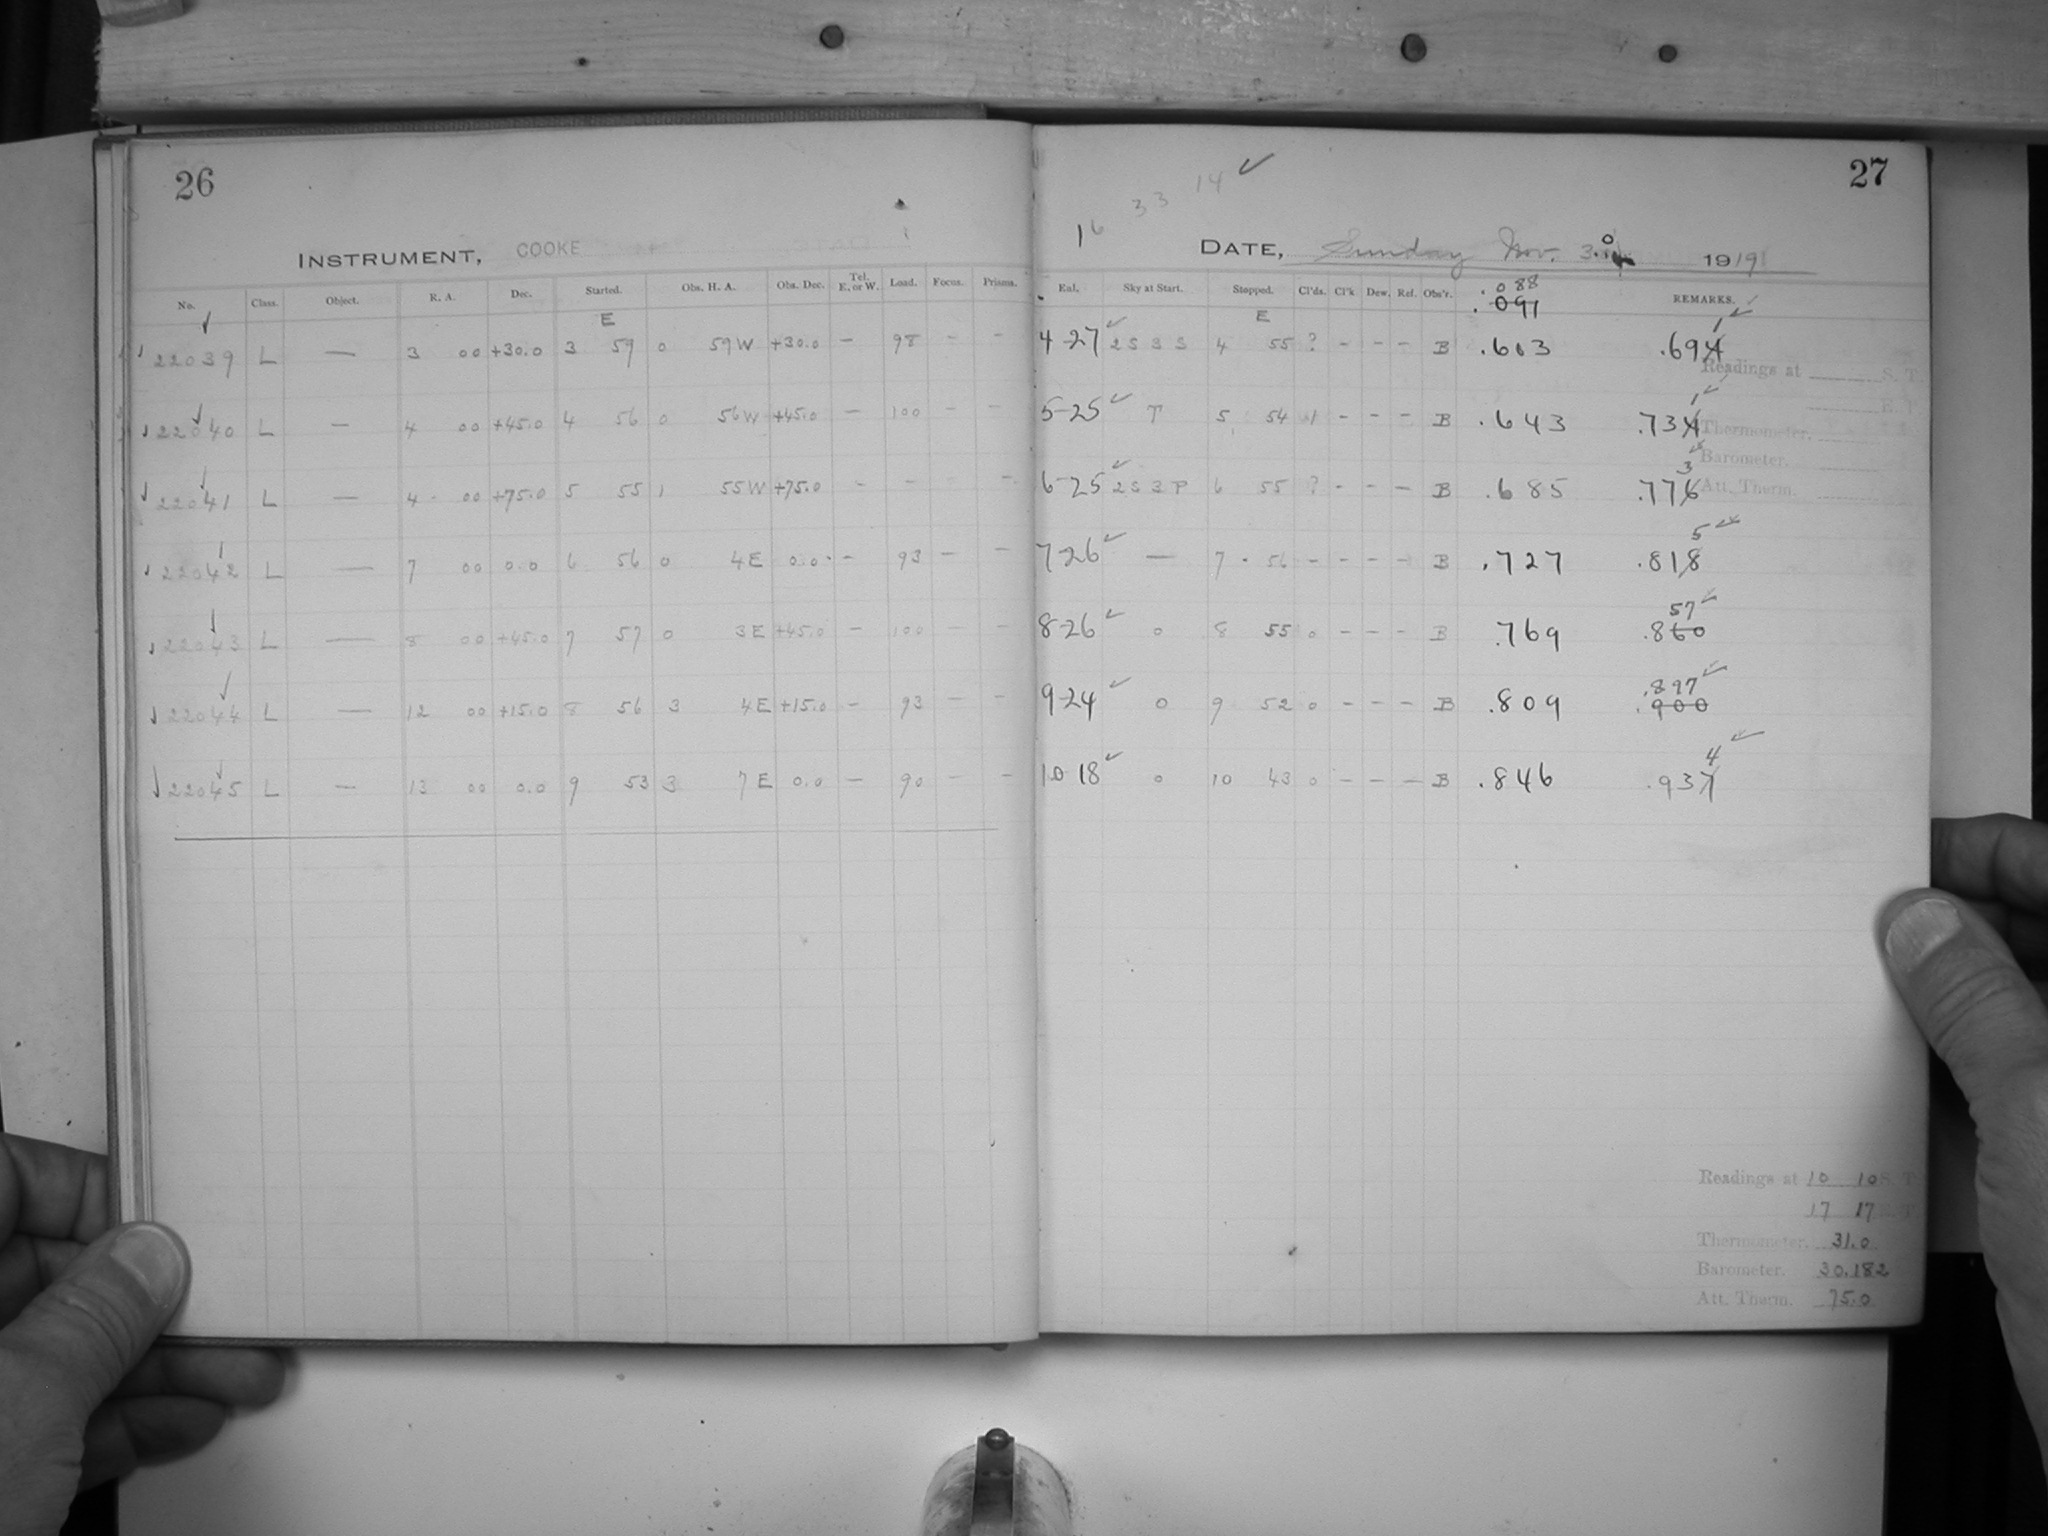 26
INSTRUMENT, COOKE
No. Class. Object. R. A. Dec. Started. Obs. H. A. Obs. Dec. Tel. E. or W. Load. Focus. Prisms.
E
22039 L — 3 00 +30.0 3 59 0 59 W +30.0 — 98 — —
22040 L — 4 00 +45.0 4 56 0 56 W +45.0 — 100 — —
22041 L — 4 00 +75.0 5 55 1 55 W +75.0 — — —
22042 L — 7 00 0.0 6 56 0 4 E 0.0 — 93 — —
22043 L — 8 00 +45.0 7 57 0 3 E +45.0 — 100 — —
22044 L — 12 00 +15.0 8 56 3 4 E +15.0 — 93 — —
22045 L — 13 00 0.0 9 53 3 7 E 0.0 — 90 — —
27
16 33 14 ✓
DATE, Sunday Nov. 30 1919
Eul. Sky at Start. Stopped. Cl'ds. Cl'k Dew. Ref. Obs'r. REMARKS.
.088
.091
E
4-27 ✓ 2 S 3 S 4 55 ? - - - B .603 .694 1 ✓
5-25 ✓ T 5 54 1 - - - B .643 .734 1 ✓
6-25 ✓ 2 S 3 P 6 55 ? - - - B .685 .776 3 ✓
7-26 ✓ — 7 56 - - - - B .727 .818 5 ✓
8-26 ✓ 0 8 55 0 - - - B .769 .860 57 ✓
9-24 ✓ 0 9 52 0 - - - B .809 .900 .897 ✓
10 18 ✓ 0 10 43 0 - - - B .846 .937 4 ✓
Readings at S. T.
E. T.
Thermometer.
Barometer.
Att. Therm.
Readings at 10 10 S. T.
17 17 T.
Thermometer. 31.0
Barometer. 30.182
Att. Therm. 75.0